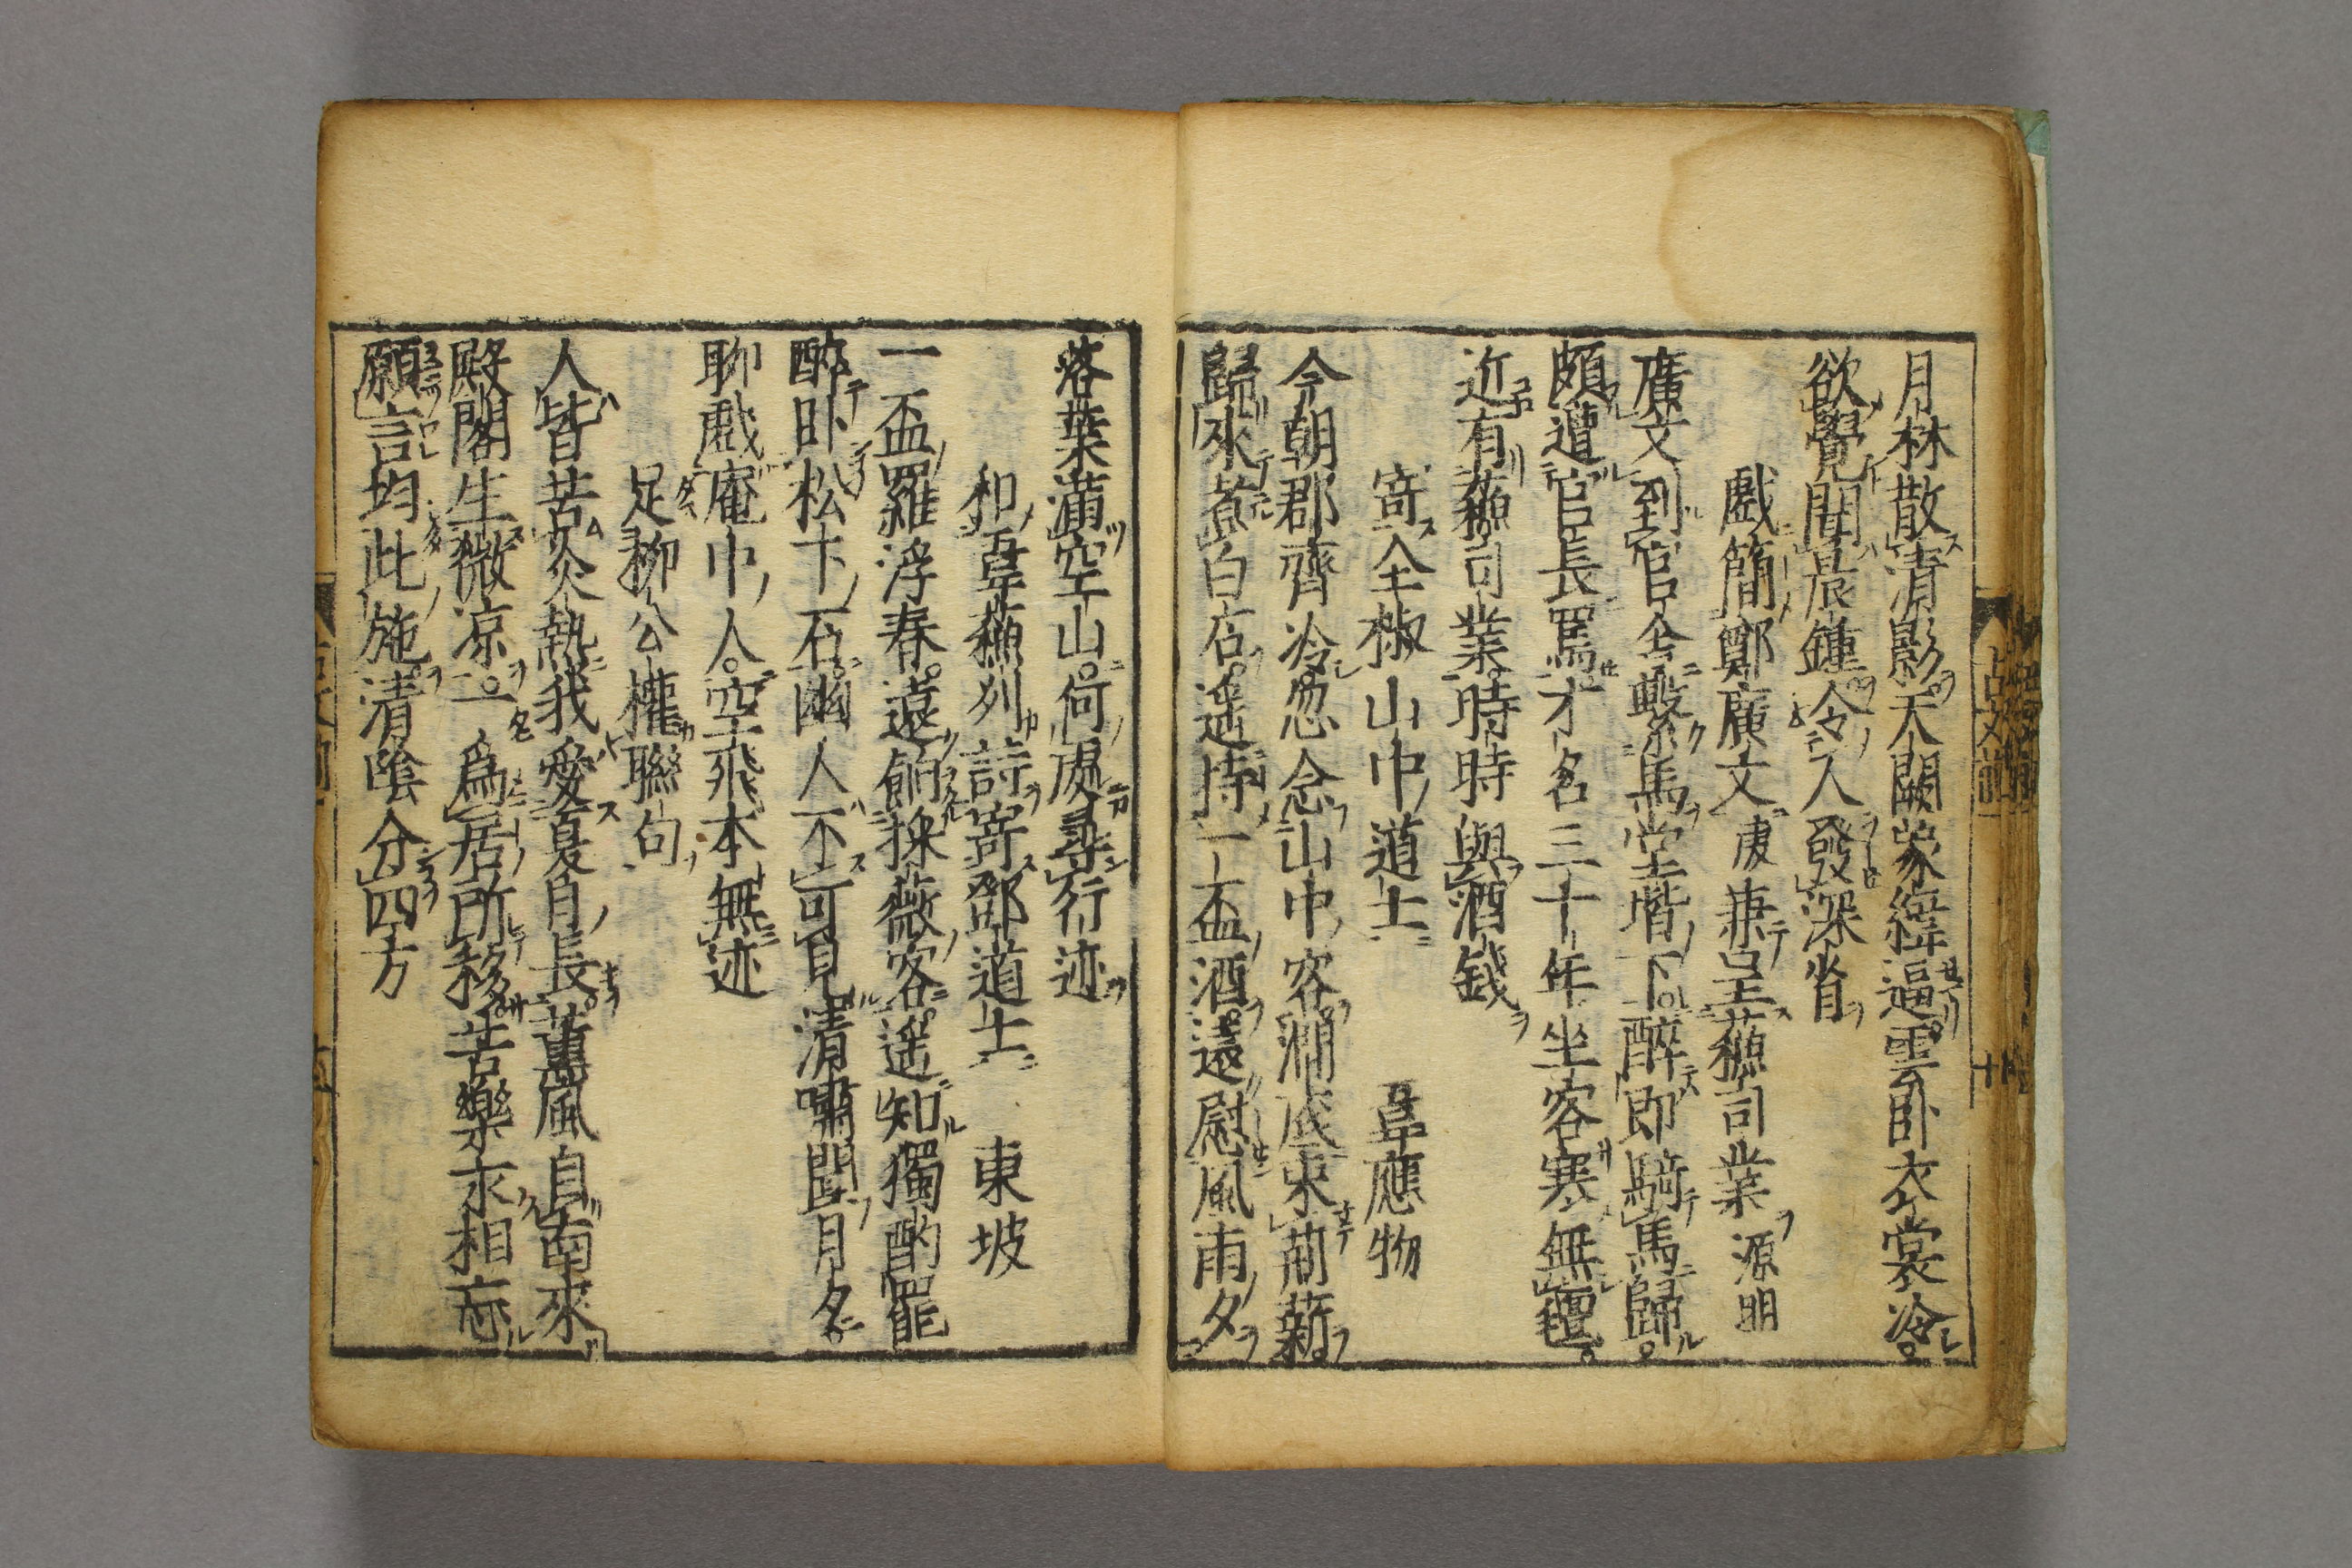 月林散清影天闕象緯逼雲卧衣裳冷
欲覺聞晨鍾令人發深省
戯簡鄭廣文虔兼呈蘓司業 源明
廣文到官舍繫馬堂階下醉即騎馬歸
頗遭官長罵才名三十年坐客寒無氊
近有蘓司業時時與酒錢
寄全椒山中道士 韋應物
今朝郡齊冷忽念山中客澗底束荊薪
歸來煮白石遥持一盃酒遠慰風雨夕
落葉滿空山何處尋行迹
和韋蘓列詩寄鄧道士 東坡
一盃羅浮春遠餉採薇客遥知獨酌罷
醉卧松下石幽人不可見清嘯聞月夕
聊戯庵中人空飛本無迹
足柳公權聯句
人皆苦炎熱我愛夏日長薰風自南來
殿閣生微凉一爲居所移苦樂永相忘
願言均此施清陰分四方
古文前 十